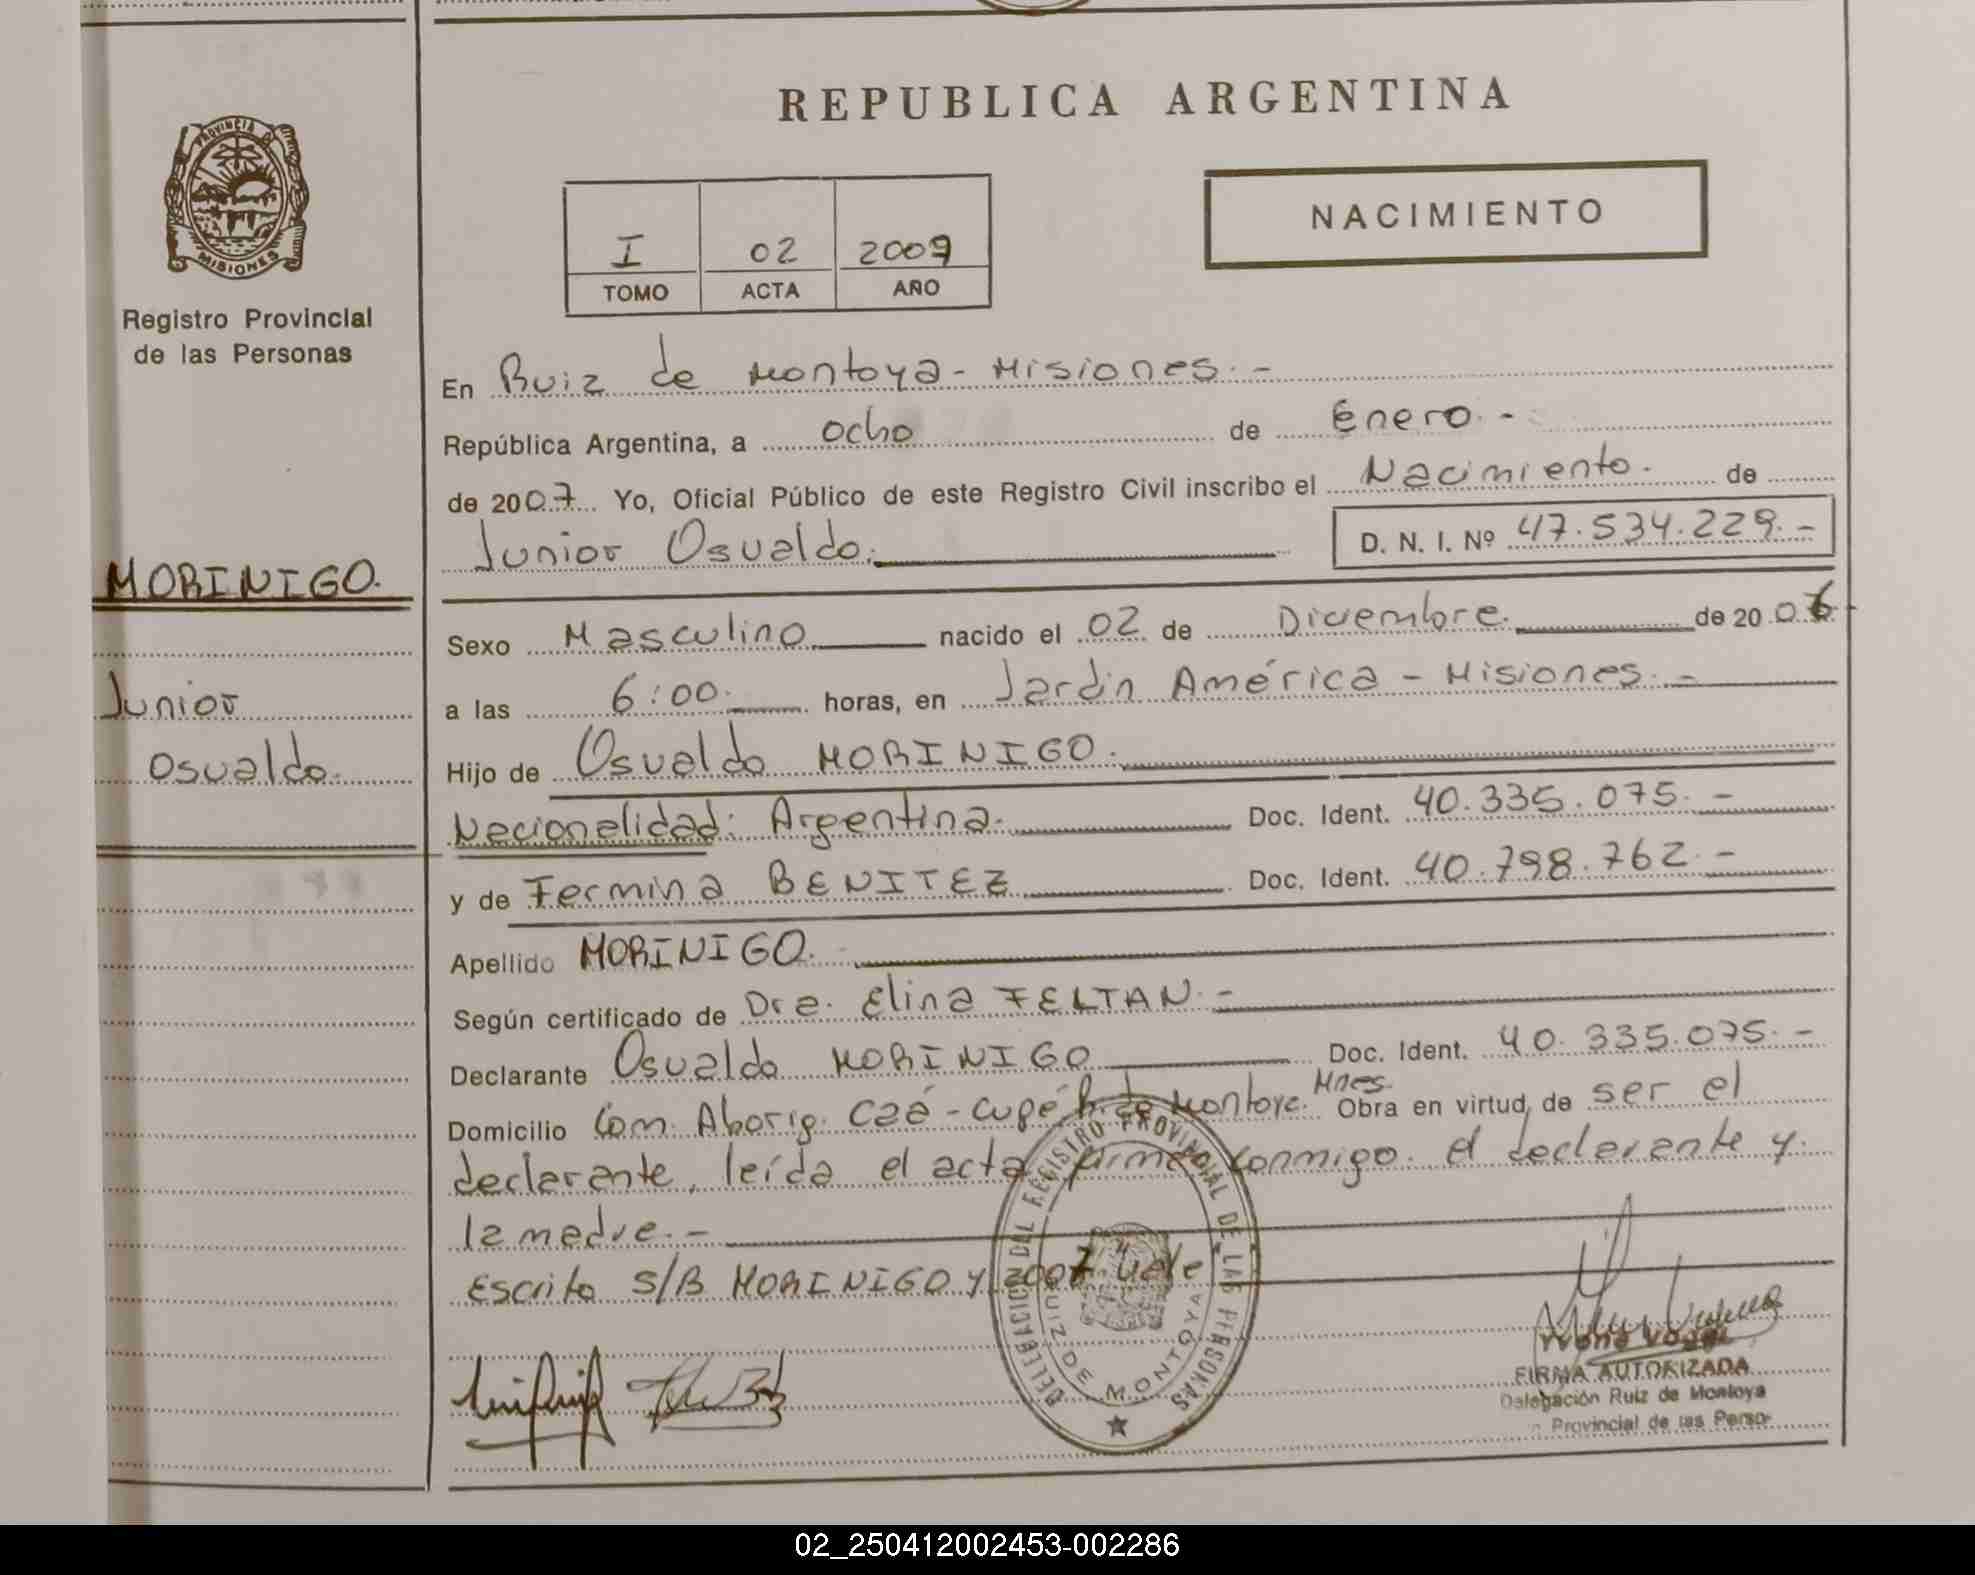 REPUBLICA ARGENTINA
PROVINCIA DE
MISIONES
Registro Provincial
de las Personas
I 02 2009
TOMO ACTA AÑO
NACIMIENTO
En Ruiz de Montoya - Misiones. -
República Argentina, a ocho de Enero. -
de 2007. Yo, Oficial Público de este Registro Civil inscribo el Nacimiento. de
Junior Osvaldo. D. N. I. Nº 47.534.229. -
MORINIGO.
Junior
Osvaldo.
Sexo Masculino nacido el 02 de Diciembre. de 2006
a las 6:00. horas, en Jardín América - Misiones. -
Hijo de Osvaldo MORINIGO.
Nacionalidad: Argentina. Doc. Ident. 40.335.075. -
y de Fermina BENITEZ Doc. Ident. 40.798.762. -
Apellido MORINIGO.
Según certificado de Dra. Elina FELTAN. -
Declarante Osvaldo MORINIGO Doc. Ident. 40.335.075. -
Domicilio Com. Aborig. Caá-Cupé R. de Montoya. Mnes. Obra en virtud de ser el
declarante, leída el acta firma conmigo. el declarante y
la madre. -
Escrito S/B MORINIGO y 2007 Vale
DELEGACION DEL REGISTRO PROVINCIAL DE LAS PERSONAS
RUIZ DE MONTOYA
FIRMA AUTORIZADA
Delegación Ruiz de Montoya
Provincial de las Perso-
02_250412002453-002286